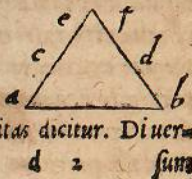 e f
c d
a b
itas dicitur. Diuer-
d 2 sum